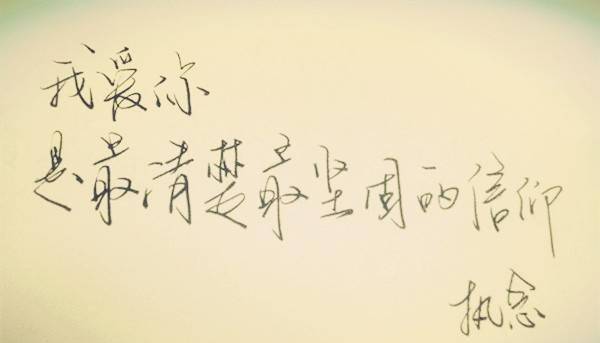 我爱你
是最清楚最坚固的信仰
执念